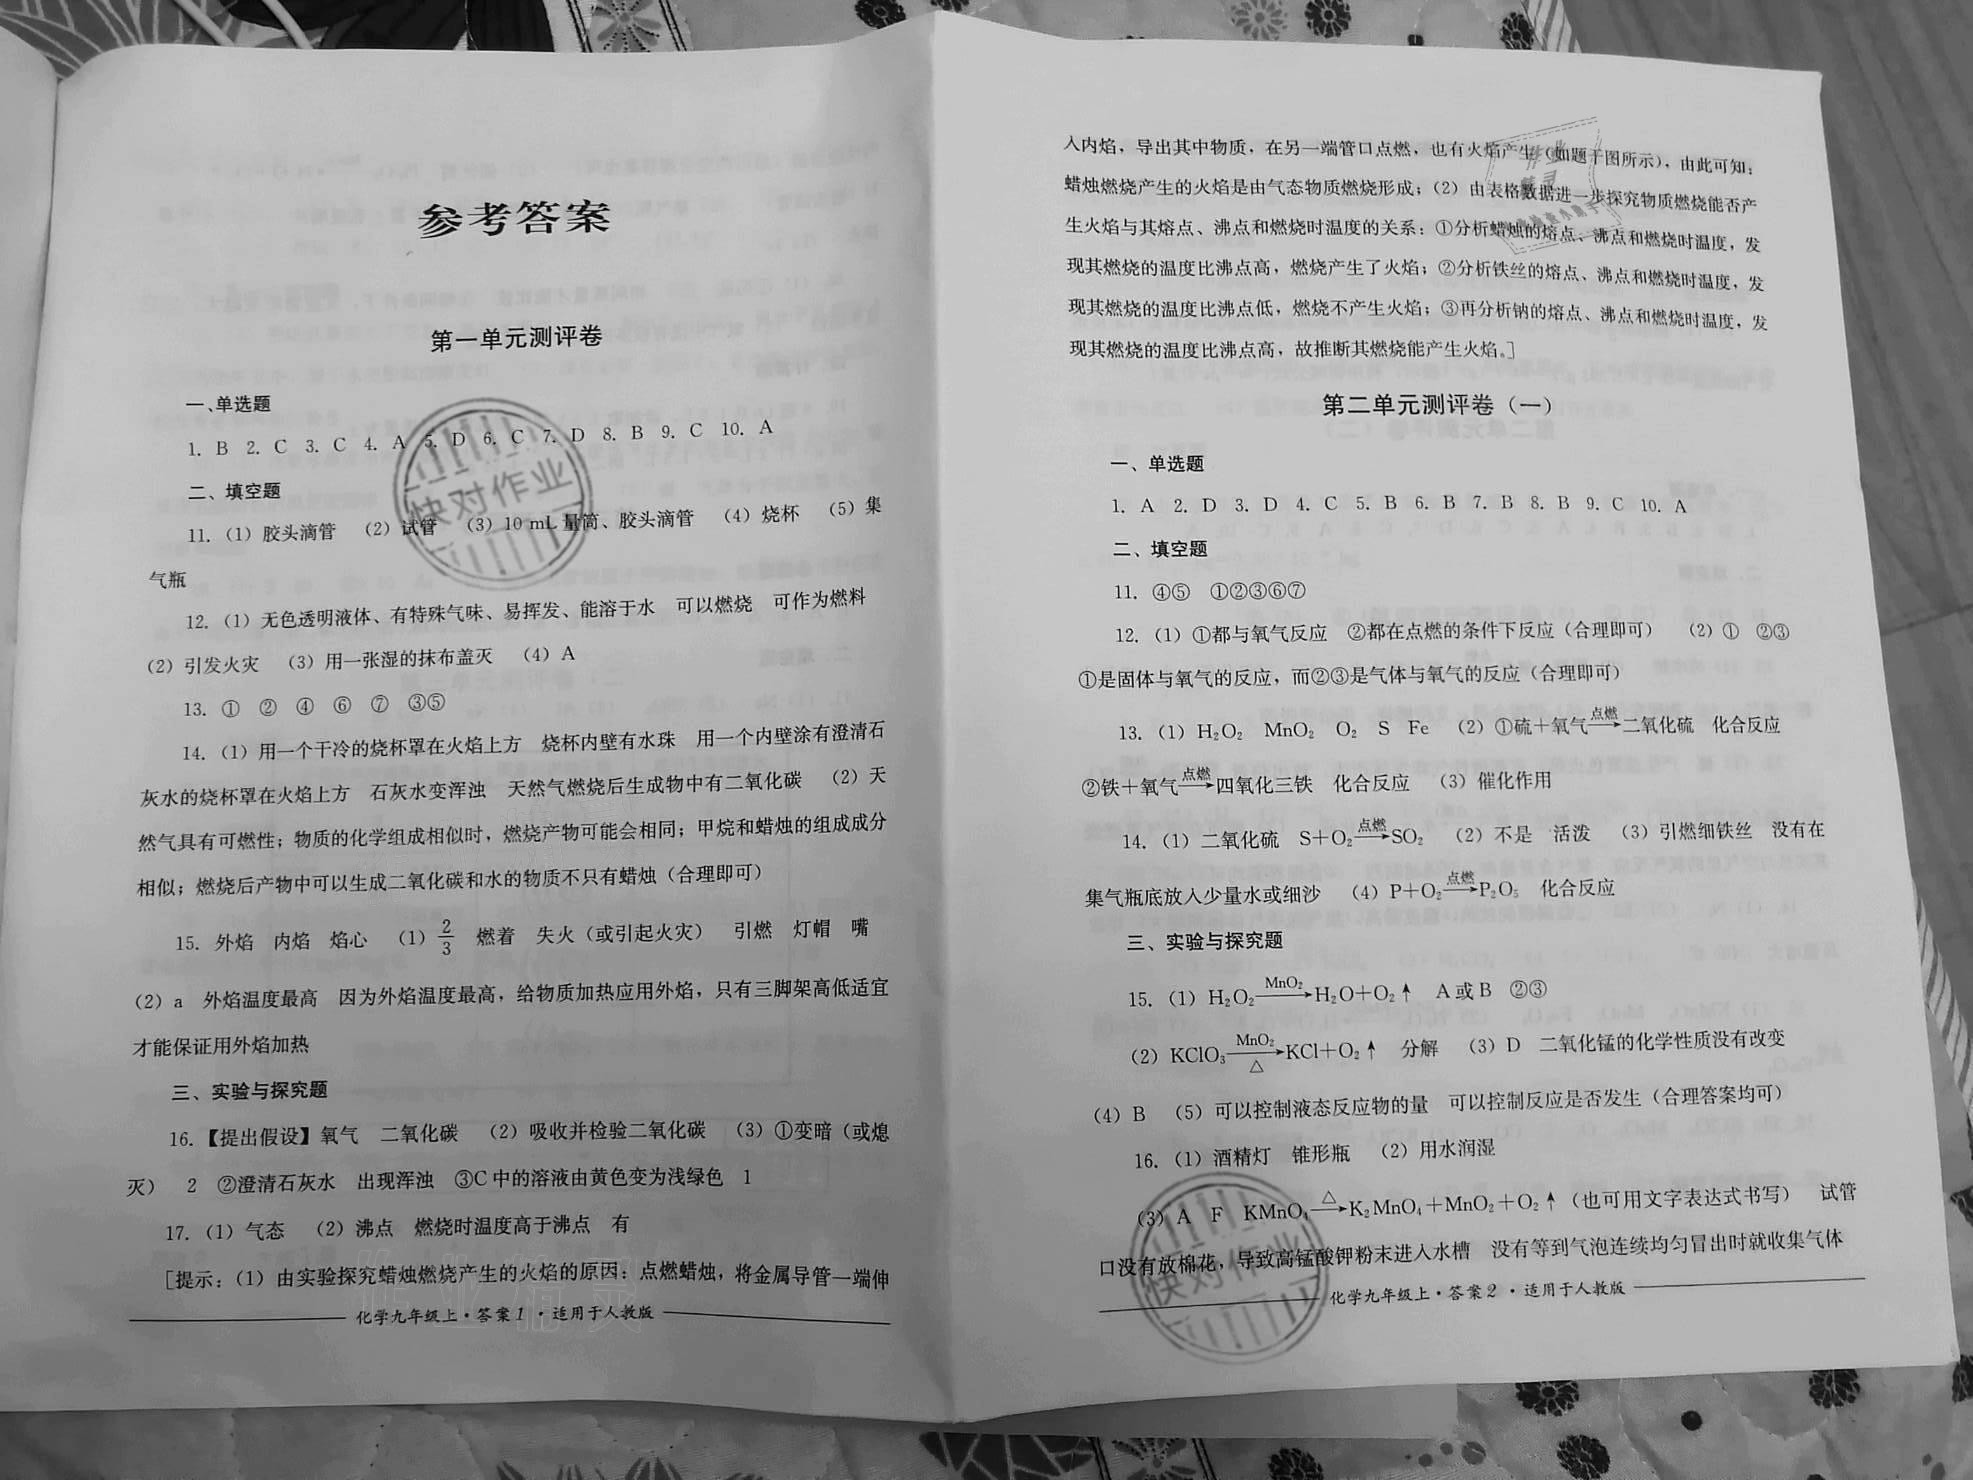 参考答案
第一单元测评卷
一、单选题
1. B 2. C 3. C 4. A 5. D 6. C 7. D 8. B 9. C 10. A
二、填空题
11.（1）胶头滴管 （2）试管 （3）10 mL量筒、胶头滴管 （4）烧杯 （5）集
气瓶
12.（1）无色透明液体、有特殊气味、易挥发、能溶于水 可以燃烧 可作为燃料
（2）引发火灾 （3）用一张湿的抹布盖灭 （4）A
13. ① ② ④ ⑥ ⑦ ③⑤
14.（1）用一个干冷的烧杯罩在火焰上方 烧杯内壁有水珠 用一个内壁涂有澄清石
灰水的烧杯罩在火焰上方 石灰水变浑浊 天然气燃烧后生成物中有二氧化碳 （2）天
然气具有可燃性；物质的化学组成相似时，燃烧产物可能会相同；甲烷和蜡烛的组成成分
相似；燃烧后产物中可以生成二氧化碳和水的物质不只有蜡烛（合理即可）
15. 外焰 内焰 焰心 （1）2/3 燃着 失火（或引起火灾） 引燃 灯帽 嘴
（2）a 外焰温度最高 因为外焰温度最高，给物质加热应用外焰，只有三脚架高低适宜
才能保证用外焰加热
三、实验与探究题
16.【提出假设】氧气 二氧化碳 （2）吸收并检验二氧化碳 （3）①变暗（或熄
灭） 2 ②澄清石灰水 出现浑浊 ③C中的溶液由黄色变为浅绿色 1
17.（1）气态 （2）沸点 燃烧时温度高于沸点 有
［提示：（1）由实验探究蜡烛燃烧产生的火焰的原因：点燃蜡烛，将金属导管一端伸
化学九年级上·答案1·适用于人教版
入内焰，导出其中物质，在另一端管口点燃，也有火焰产生（如题干图所示），由此可知，
蜡烛燃烧产生的火焰是由气态物质燃烧形成；（2）由表格数据进一步探究物质燃烧能否产
生火焰与其熔点、沸点和燃烧时温度的关系：①分析蜡烛的熔点、沸点和燃烧时温度，发
现其燃烧的温度比沸点高，燃烧产生了火焰；②分析铁丝的熔点、沸点和燃烧时温度，发
现其燃烧的温度比沸点低，燃烧不产生火焰；③再分析钠的熔点、沸点和燃烧时温度，发
现其燃烧的温度比沸点高，故推断其燃烧能产生火焰。］
第二单元测评卷（一）
一、单选题
1. A 2. D 3. D 4. C 5. B 6. B 7. B 8. B 9. C 10. A
二、填空题
11. ④⑤ ①②③⑥⑦
12.（1）①都与氧气反应 ②都在点燃的条件下反应（合理即可） （2）① ②③
①是固体与氧气的反应，而②③是气体与氧气的反应（合理即可）
13.（1）H₂O₂ MnO₂ O₂ S Fe （2）①硫＋氧气—点燃→二氧化硫 化合反应
②铁＋氧气—点燃→四氧化三铁 化合反应 （3）催化作用
14.（1）二氧化硫 S＋O₂—点燃→SO₂ （2）不是 活泼 （3）引燃细铁丝 没有在
集气瓶底放入少量水或细沙 （4）P＋O₂—点燃→P₂O₅ 化合反应
三、实验与探究题
15.（1）H₂O₂—MnO₂→H₂O＋O₂↑ A或B ②③
（2）KClO₃—MnO₂/△→KCl＋O₂↑ 分解 （3）D 二氧化锰的化学性质没有改变
（4）B （5）可以控制液态反应物的量 可以控制反应是否发生（合理答案均可）
16.（1）酒精灯 锥形瓶 （2）用水润湿
（3）A F KMnO₄—△→K₂MnO₄＋MnO₂＋O₂↑（也可用文字表达式书写） 试管
口没有放棉花，导致高锰酸钾粉末进入水槽 没有等到气泡连续均匀冒出时就收集气体
化学九年级上·答案2·适用于人教版
快对作业
快对作业
作业精灵